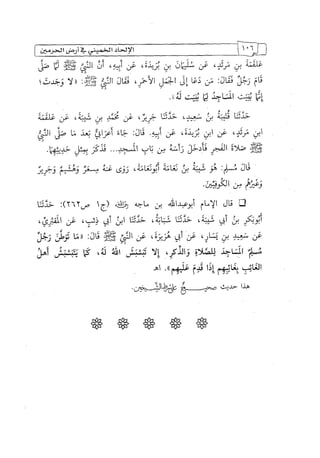 ١٠٦ الإلحاد الخميني في أرض الحرمين
عَلقَمَةَ بنِ مَرثَدٍ، عَن سُلَيمَانَ بنِ بُرَيدَةَ، عَن أَبِيهِ، أَنَّ النَّبِيَّ ﷺ لَمَّا صَلَّى
قَامَ رَجُلٌ فَقَالَ: مَن دَعَا إِلَى الجَمَلِ الأَحمَرِ، فَقَالَ النَّبِيُّ ﷺ: «لا وَجَدتَ؛
إِنَّمَا بُنِيَت المَسَاجِدُ لِمَا بُنِيَت لَهُ».
حَدَّثَنَا قُتَيبَةُ بنُ سَعِيدٍ، حَدَّثَنَا جَرِيرٌ، عَن مُحَمَّدِ بنِ شَيبَةَ، عَن عَلقَمَةَ
ابنِ مَرثَدٍ، عَن ابنِ بُرَيدَةَ، عَن أَبِيهِ. قَالَ: جَاءَ أَعرَابِيٌّ بَعدَ مَا صَلَّى النَّبِيُّ
ﷺ صَلاةَ الفَجرِ فَأَدخَلَ رَأسَهُ مِن بَابِ المَسجِدِ... فَذَكَرَ بِمِثلِ حَدِيثِهِمَا.
قَالَ مُسلِم: هُوَ شَيبَةُ بنُ نَعَامَةَ أَبُونَعَامَةَ، رَوَى عَنهُ مِسعَرٌ وَهُشَيمٌ وَجَرِيرٌ
وَغَيرُهُم مِن الكُوفِيِّينَ.
❑ قال الإمام أبوعبدالله بن ماجه (ج١ ص٢٦٢): حَدَّثَنَا
أَبُوبَكرِ بنُ أَبِي شَيبَةَ، حَدَّثَنَا شَبَابَةُ، حَدَّثَنَا ابنُ أَبِي ذِئبٍ، عَن المَقبُرِيِّ،
عَن سَعِيدِ بنِ يَسَارٍ، عَن أَبِي هُرَيرَةَ، عَن النَّبِيِّ ﷺ قَالَ: «مَا تَوَطَّنَ رَجُلٌ
مُسلِمٌ المَسَاجِدَ لِلصَّلاةِ وَالذِّكرِ، إِلا تَبَشبَشَ اللهُ لَهُ، كَمَا يَتَبَشبَشُ أَهلُ
الغَائِبِ بِغَائِبِهِم إِذَا قَدِمَ عَلَيهِم». اهـ
هذا حديث صحيح على شرط الشيخين.